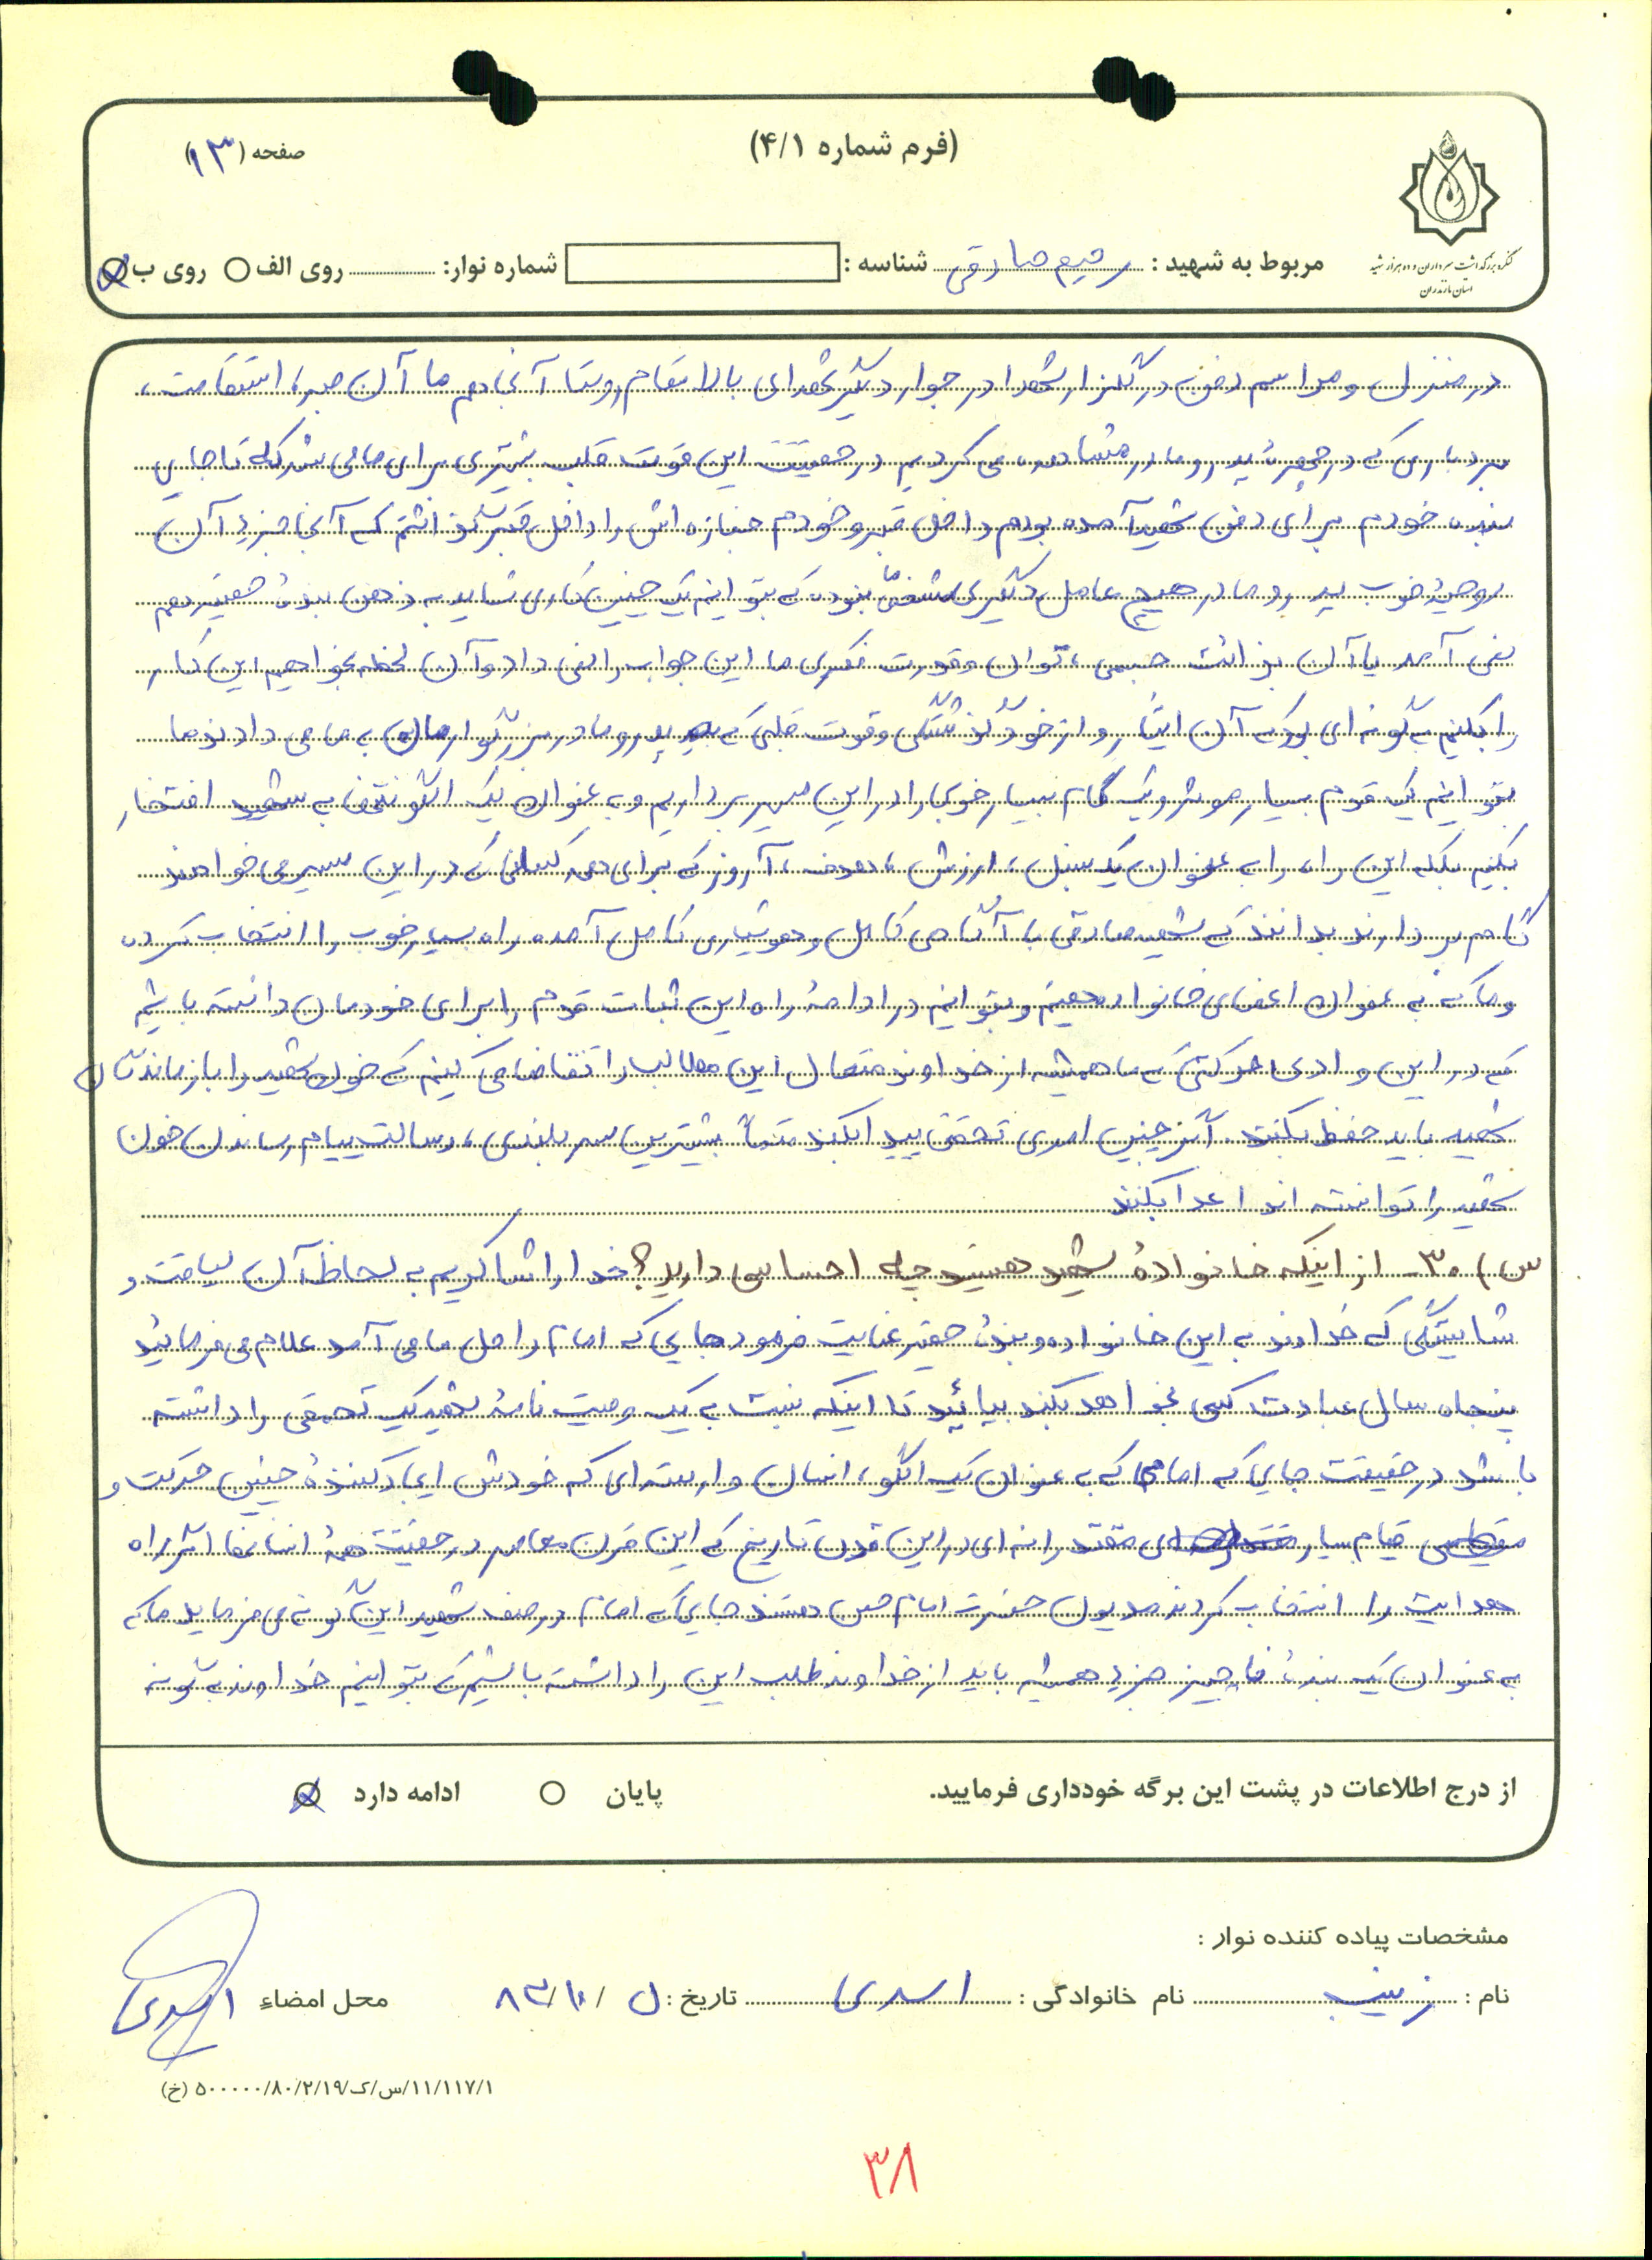 (فرم شماره ۴/۱)
صفحه (۱۳)
کنگره بزرگداشت سرداران و ده هزار شهید
استان مازندران
مربوط به شهید : رحیم صادقی شناسه : شماره نوار: روی الف روی ب
در منزل و مراسم دفن در گلزار شهدا در جوار دیگر شهدای بالا مقام روستا آنجا هم ما آن صبر، استقامت،
بردباری که در چهرهٔ پدر و مادر مشاهده می کردیم در حقیقت این قوت قلب بیشتری برای ما می شد که تا جایی
بنده خودم برای دفن شهید آمده بودم داخل قبر و خودم جنازه اش را داخل قبر گذاشتم که آنجا جزء آن
روحیهٔ خوب پدر و مادر هیچ عامل دیگری مشخصاً نبود که بتوانیم یک چنین کاری شاید به ذهن بندهٔ حقیر هم
نمی آمد یا آن برداشت جسمی، توان و قدرت فکری ما این جواب را نمی داد و آن لحظه بخواهیم این کار
را بکنیم به گونه ای بود که آن ایثار و از خود گذشتگی و قوت قلبی که پدر و مادر بزرگوارمان به ما می دادند ما
بتوانیم یک قدم بسیار موثر و یک گام بسیار خوبی را در این مسیر برداریم و به عنوان یک الگو نه تنها به شهید افتخار
بکنیم بلکه این راه را به عنوان یک سنبل، ارزش، هدف، آرزو که برای همه کسانی که در این مسیر می خواهند
گام بردارند بدانند که شهید صادقی با آگاهی کامل و هوشیاری کامل آمده راه بسیار خوب را انتخاب کرده
و ما که به عنوان اعضای خانواده هستیم و بتوانیم در ادامهٔ راه این ثبات قدم را برای خودمان دانسته باشیم
که در این وادی حرکتی که ما همیشه از خداوند متعال این مطالب را تقاضا می کنیم که خون شهید را بازماندگان
شهید باید حفظ بکنند. اگر چنین امری تحقق پیدا بکند حتماً بیشترین سر بلندی، رسالت پیام رساندن خون
شهید را توانسته اند اعدا بکنند
س) ۳۰- از اینکه خانوادهٔ شهید هستید چه احساسی دارید؟ خدا را شاکریم به لحاظ آن لیاقت و
شایستگی که خداوند به این خانواده و بندهٔ حقیر عنایت فرمود جایی که امام راحل ما می آمد علام می فرمائید
پنجاه سال عبادت کسی نخواهد بکند بیائید تا اینکه نسبت به یک وصیت نامهٔ شهید یک تحقیقی را داشته
باشد در حقیقت جایی که امامی که به عنوان یک الگو، انسان وارسته ای که خودش ایجاد کنندهٔ چنین حرکت و
قیام بسیار مقتدرانه ای در این قرن تاریخ که این قرن معاصر در حقیقت همهٔ انسانها اگر راه
هدایت را انتخاب کردند مدیون حضرت امام خمینی هستند جایی که امام در وصف شهید این گونه می فرماید ما که
به عنوان یک بندهٔ ناچیز جزء همیشه باید از خداوند طلب این را داشته باشیم که بتوانیم خداوند به گونه
از درج اطلاعات در پشت این برگه خودداری فرمایید. پایان ادامه دارد
مشخصات پیاده کننده نوار :
نام : زینب نام خانوادگی : اسدی تاریخ : ل /۱۰/ ۸۳ محل امضاءِ اسدی
۱۱/۱۱۷/۱/س/ک/۵۰۰۰۰۰/۸۰/۲/۱۹ (خ)
۳۸